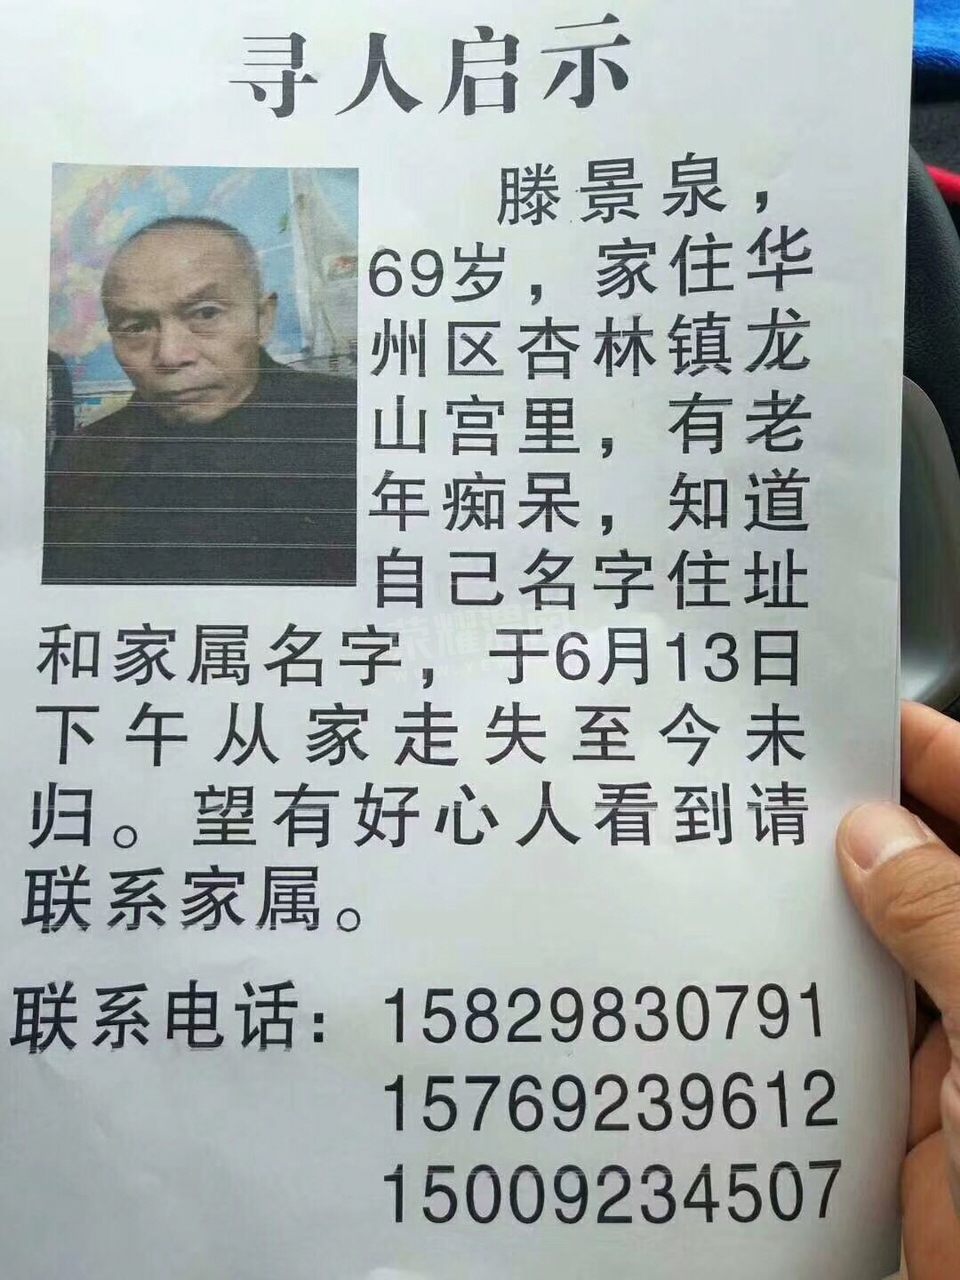 寻人启示
滕景泉，
69岁，家住华
州区杏林镇龙
山宫里，有老
年痴呆，知道
自己名字住址
和家属名字，于6月13日
下午从家走失至今未
归。望有好心人看到请
联系家属。
联系电话：15829830791
15769239612
15009234507